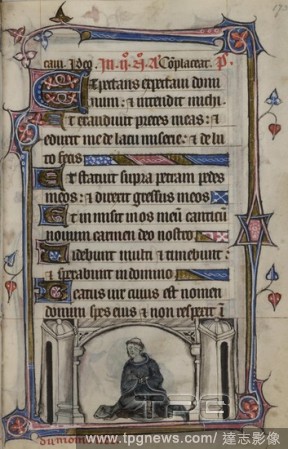 Ideo. A Cōplaceat. P.
Expectans expectaui domi
num: & intendit michi.
Et exaudiuit preces meas: &
eduxit me de lacu miserie: & de lu
to fecis
Et statuit supra petram pedes
meos: & direxit gressus meos
Et inmisit in os meū canticū
nouum carmen deo nostro
Uidebunt multi & timebunt:
& sperabunt in domino
Beatus uir cuius est nomen
domini spes eius & non respexit ī
TPG
www.tpgnews.com / 達志影像